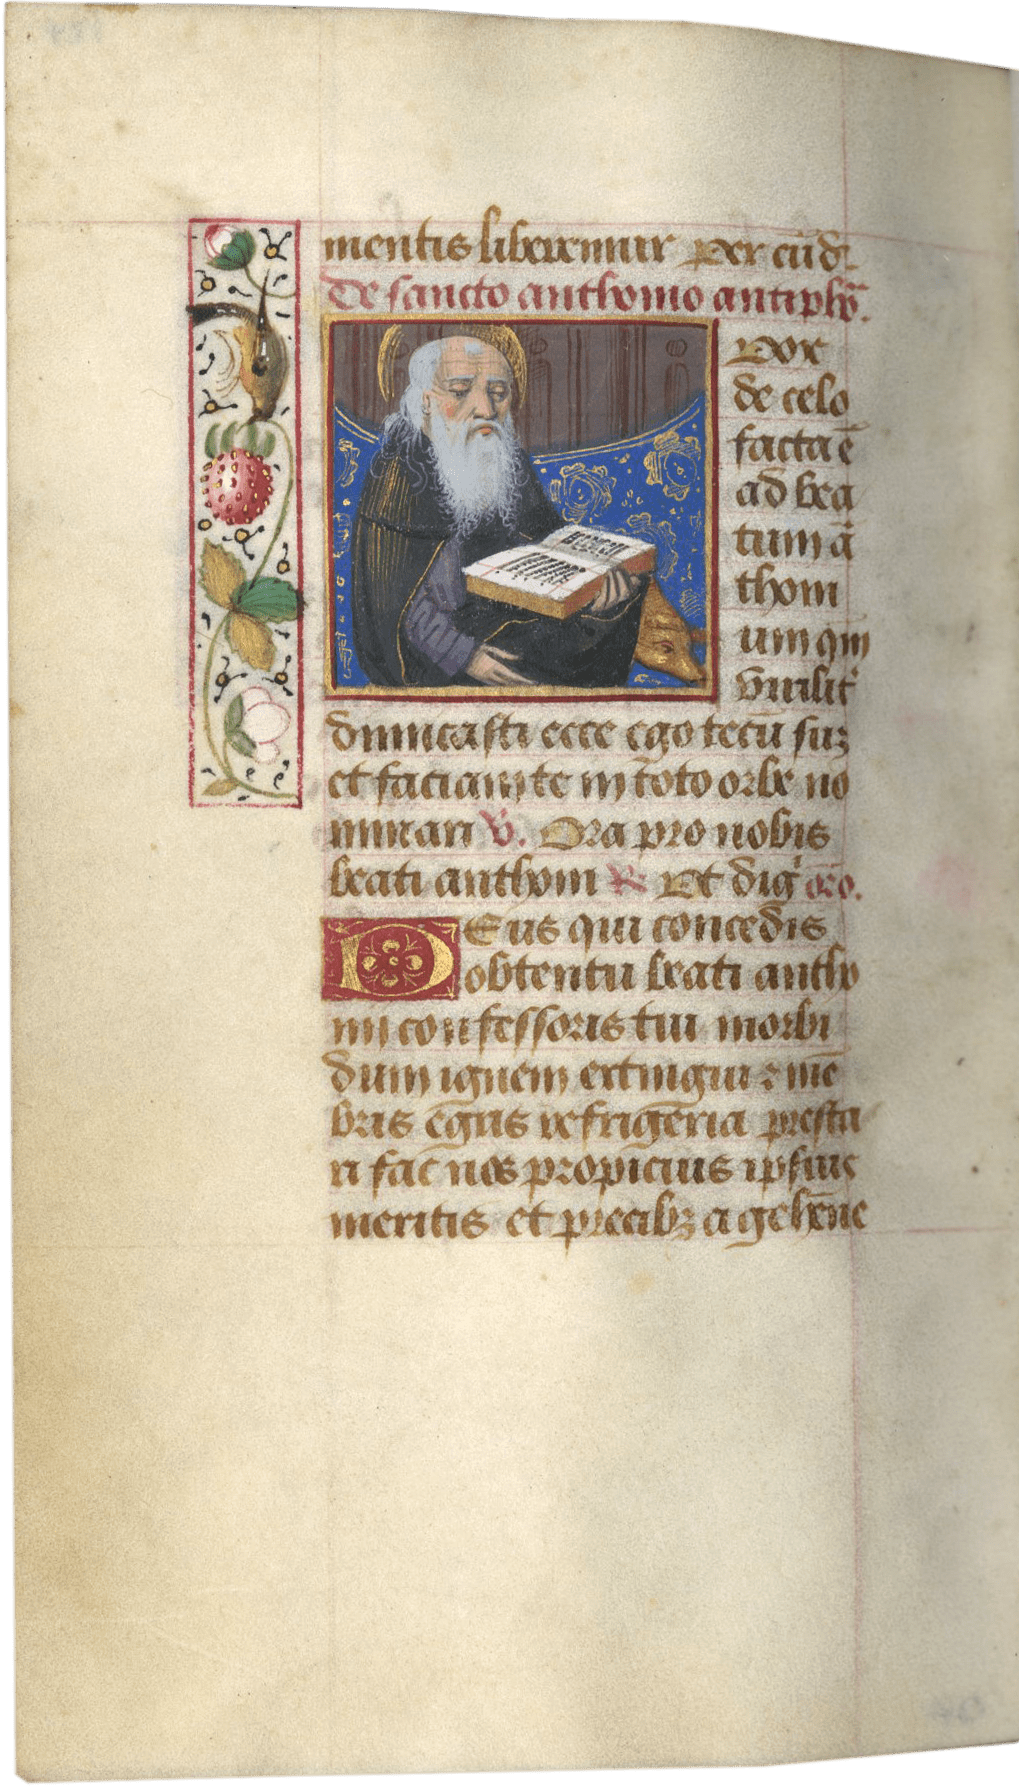 mentis liberemur Per eūd
De sancto anthonio antiphō.
Vox
de celo
facta ē
ad bea
tum ā
thoni
um qm̄
virilit̄
dimicasti ecce ego tecū suꝫ
et faciam te in toto orbe no
minari ℣. Ora pro nobis
beati anthoni ℟ Et diḡ oro.
Deus qui concedis
obtentu beati antho
nii confessoris tui morbi
dum ignem extingui ⁊ mē
bris egris refrigeria presta
ri fac nos propicius ipsius
meritis et precibꝫ a gehēne